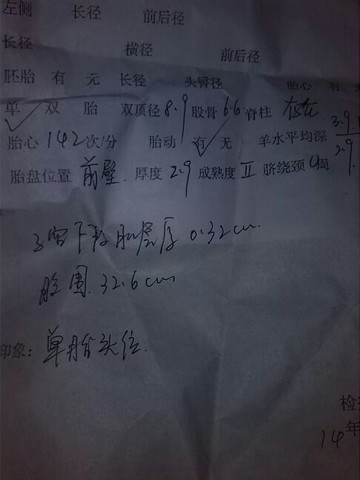 左侧 长径 前后径
长径 横径 前后径
胚胎 有 无 长径 头臀径 胎心 有
单 双 胎 双顶径 8.9 股骨 6.6 脊柱 存在
胎心 142 次/分 胎动 有 无 羊水平均深 3.9 2.9
胎盘位置 前壁. 厚度 2.9 成熟度 Ⅱ 脐绕颈
子宫下段肌层厚 0.32cm
腹围 32.6cm
印象: 单胎头位.
检
14年